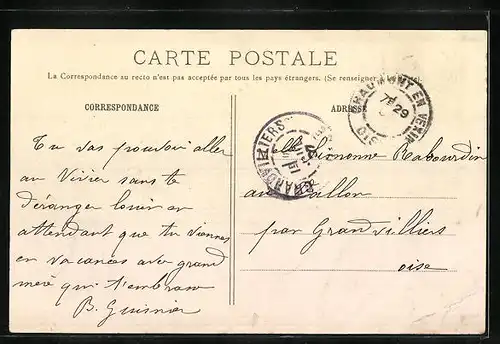 CARTE POSTALE
La Correspondance au recto n'est pas acceptée par tous les pays étrangers. (Se renseigner à la Poste).
CORRESPONDANCE
ADRESSE
CHAUMONT EN VEXIN
29
GRANDVILLIERS
Tu vas pouvoir aller
au Vivier sans te
déranger
attendant que tu viennes
en vacances avec grand
mère qui t'embrasse
B.
elle Simonne Rabourdin
au
par Grandvilliers
oise